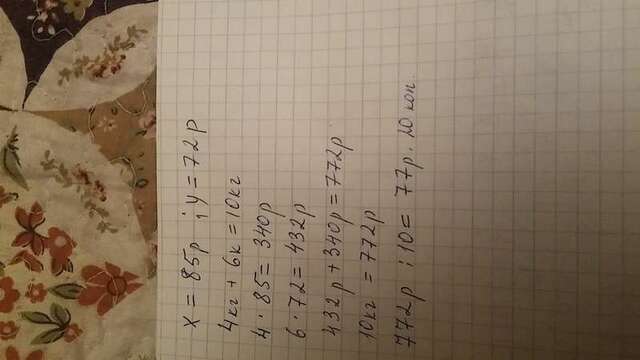 x = 85р ; y = 72р
4кг + 6к = 10кг
4 · 85 = 340р
6 · 72 = 432р
432р + 340р = 772р
10кг = 772р
772р : 10 = 77р. 20 коп.